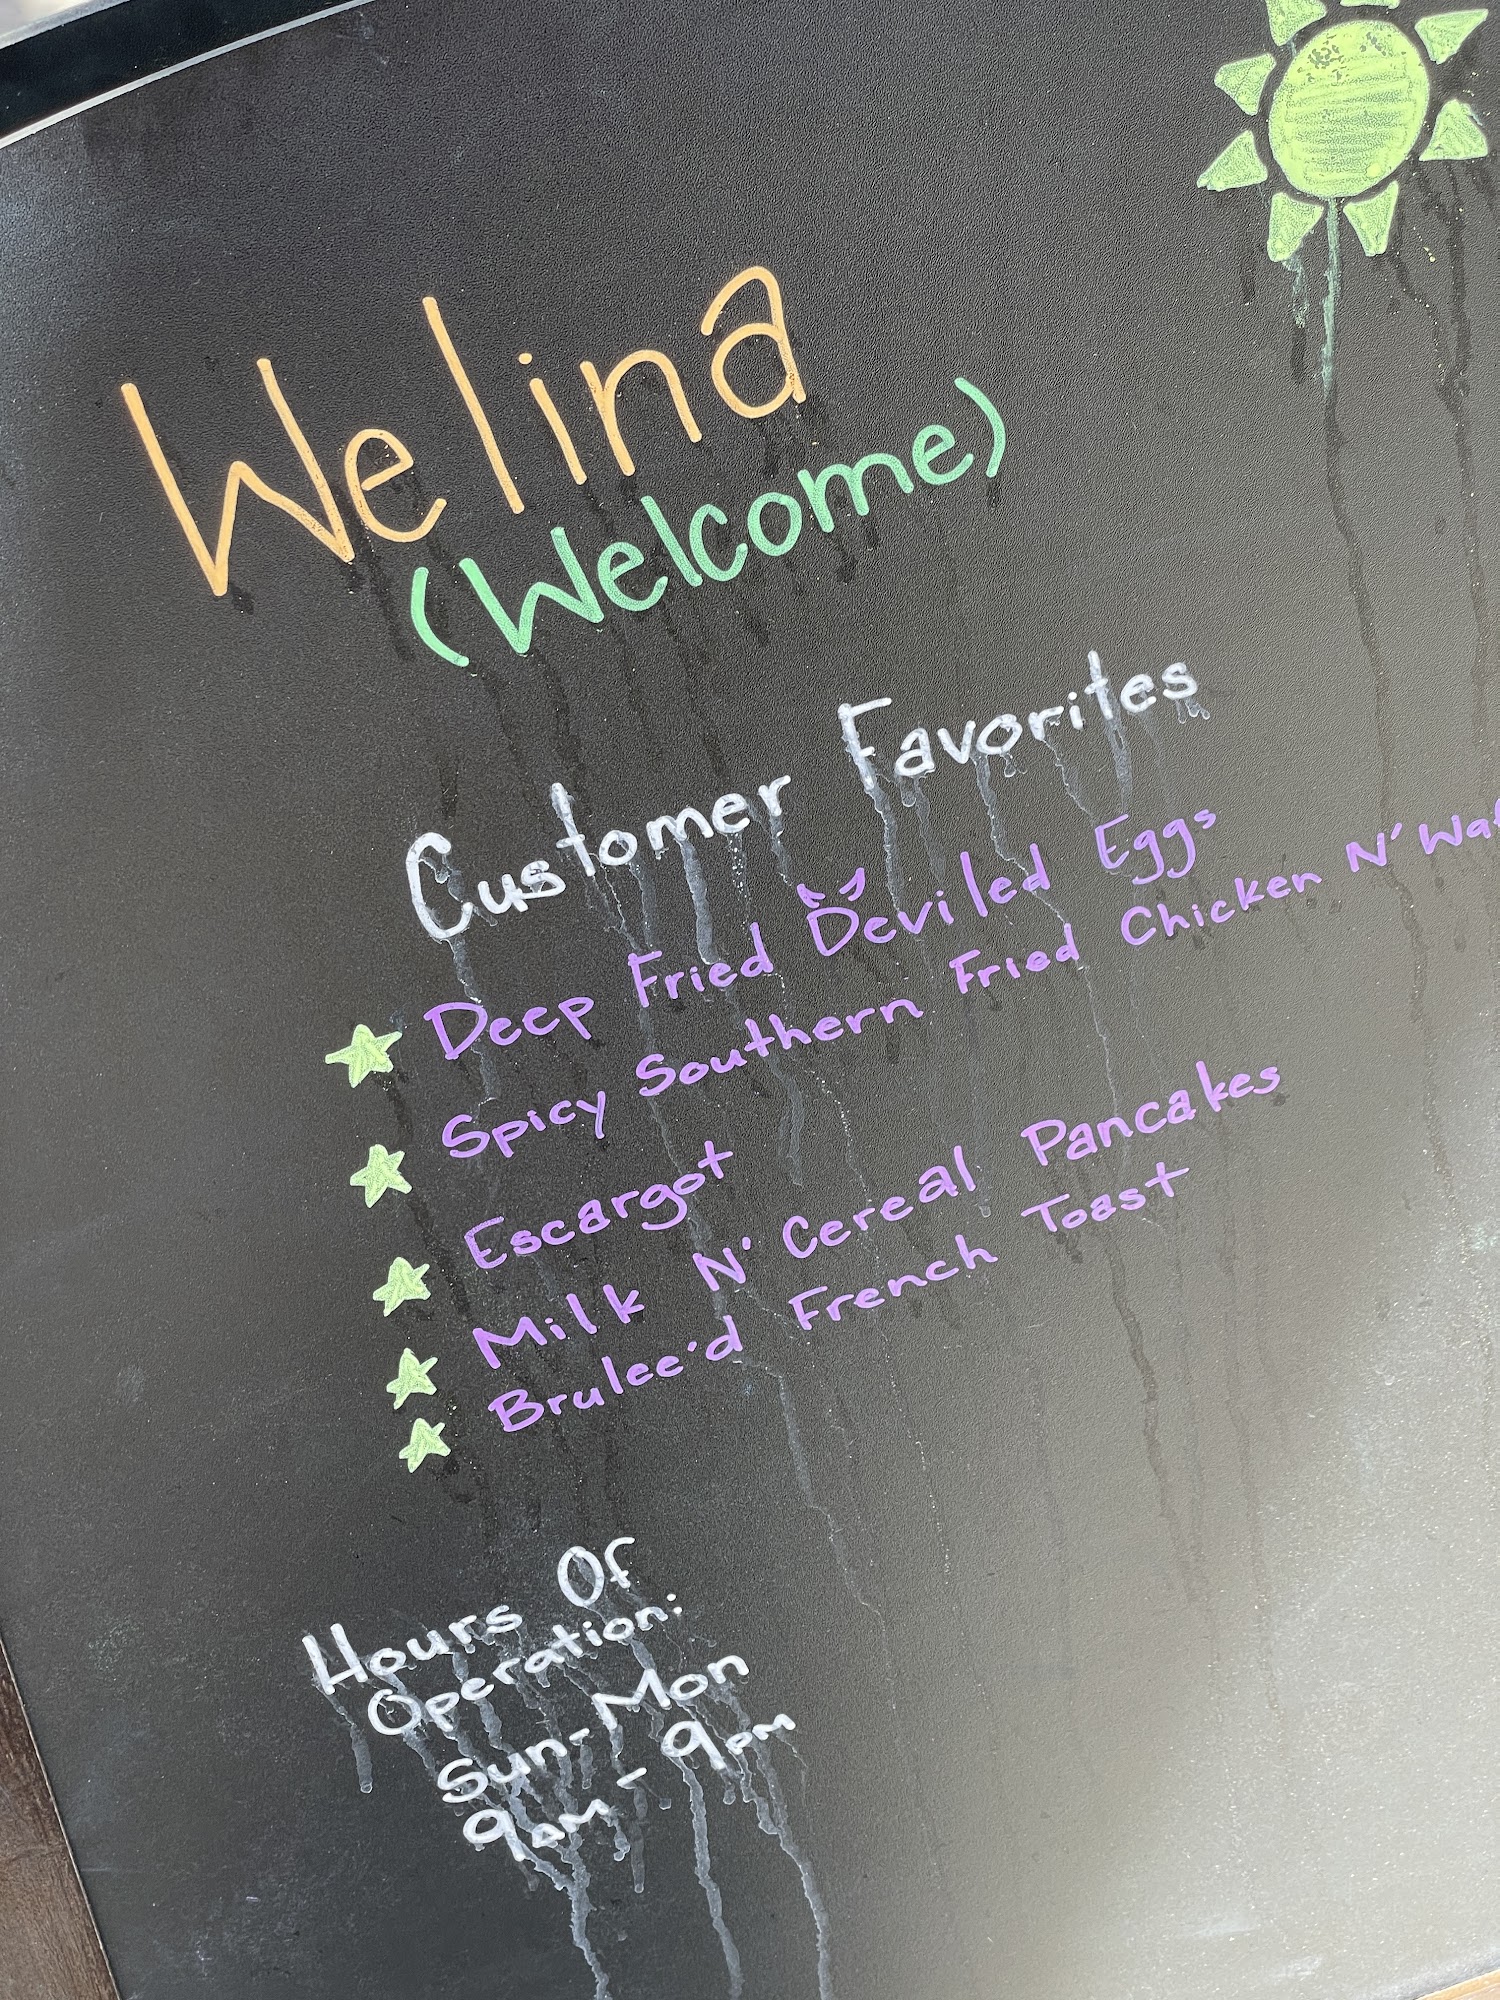 Welina
(Welcome)
Customer Favorites
Deep Fried Deviled Eggs
Spicy Southern Fried Chicken N' Waf
Escargot
Milk N' Cereal Pancakes
Brulee'd French Toast
Hours Of
Operation:
Sun-Mon
9am - 9pm